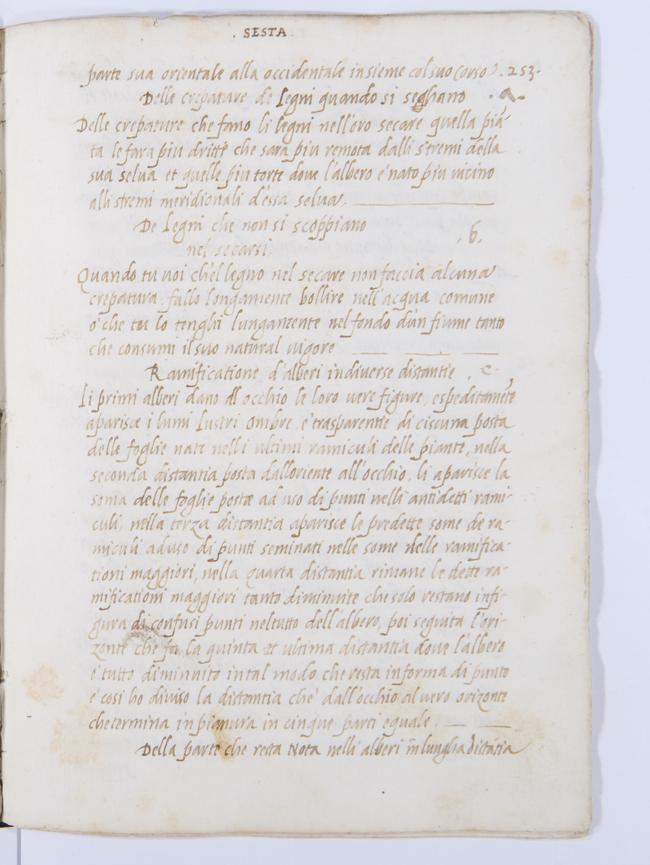 . SESTA .
parte sua orientale alla occidentale insieme col suo corso . 253.
Delle crepature de legni quando si seghano . a .
Delle crepature che fano li legni nell'oro secare quella piā
ta le fara piu dritte che sara piu remota dalli stremi della
sua selua et quelle piu torte doue l'albero è nato piu uicino
alli stremi meridionali d'essa selua.
De legni che non si scoppiano
nel secarsi. . b.
Quando tu uoi ch'el legno nel secare non faccia alcuna
crepatura fallo longamente bollire nell'acqua comune
o' che tu lo tenghi lungamente nel fondo d'un fiume tanto
che consumi il suo natural uigore
Ramificatione d'alberi in diuerse distantie . c.
Li primi alberi dano all occhio le loro uere figure, espeditamēte
aparisce i lumi lustri ombre, e' trasparentie di ciscuna posta
delle foglie nate nelli ultimi ramiculi delle piante, nella
seconda distantia posta dall'oriente all'occhio, li aparisce la
soma delle foglie posta ad uso di punti nelli antidetti rami-
culi, nella terza distantia aparisce le predette some de ra-
miculi ad uso di punti seminati nelle some delle ramifica-
tioni maggiori, nella quarta distantia rimane le dette ra-
mificationi maggiori tanto diminuite che solo restano infi-
gura di confusi punti nel tutto dell'albero, poi seguita l'ori-
zonte che fa la quinta et ultima distantia doue l'albero
e' tutto diminuito in tal modo che resta in forma di punto
e' cosi ho diuiso la distantia che' dall'occhio al uero orizonte
che termina in pianura in cinque parti eguale.
Della parte che resta Nota nelli alberi in lungha distātia